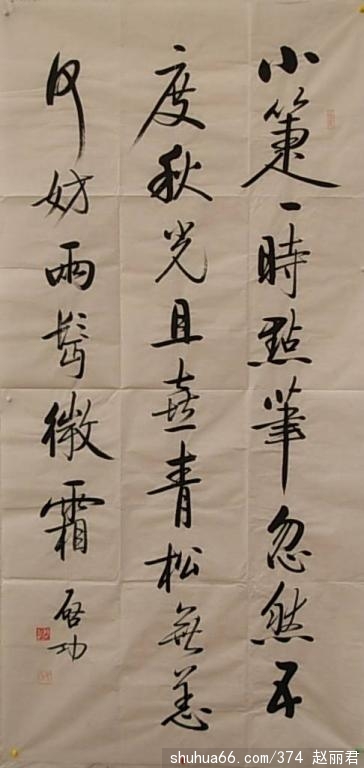 小箑一時點筆忽然五
度秋光且喜青松無恙
何妨兩鬢微霜
啓功
shuhua66.com/374 赵丽君